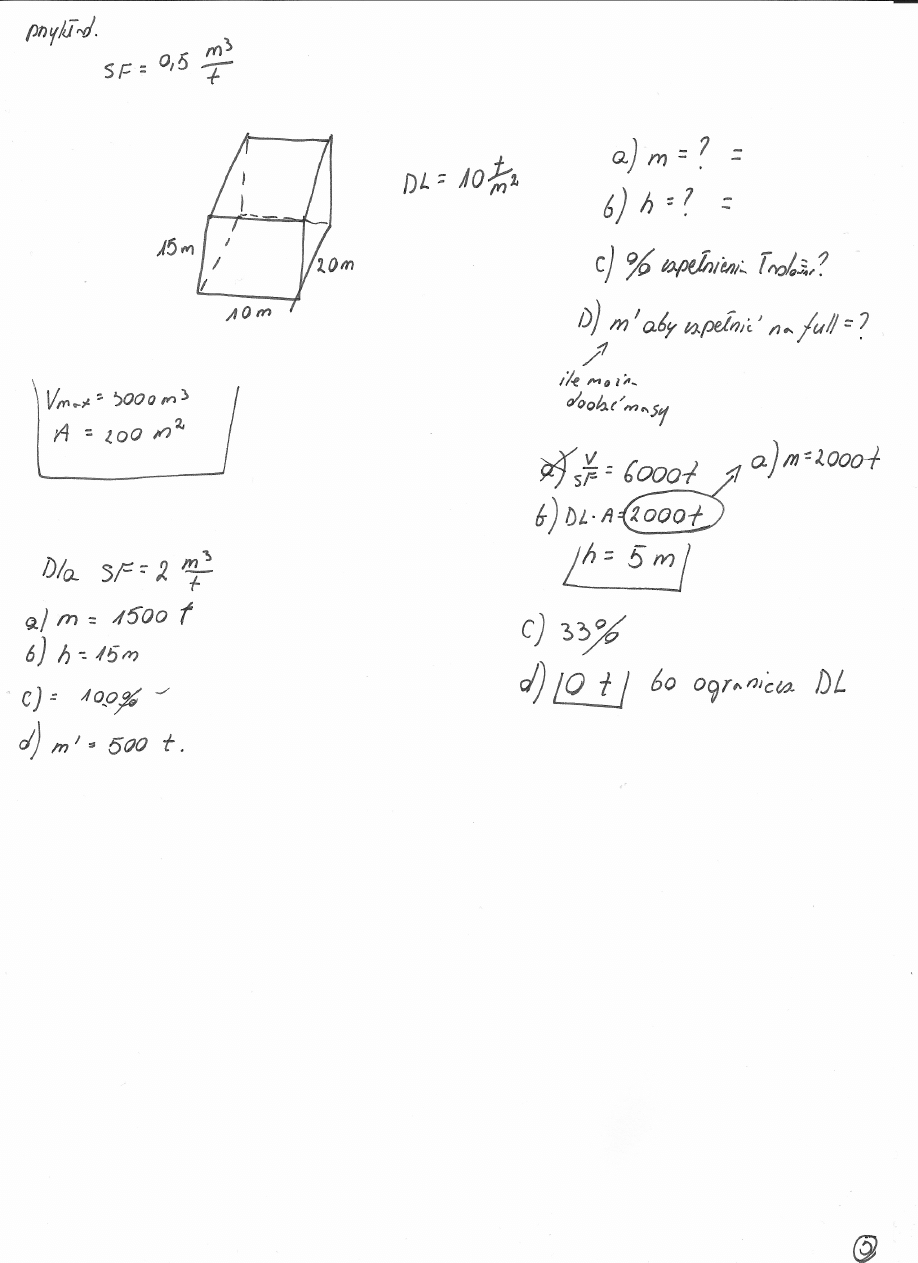 przykład.
SF = 0,5 m³/t
15m
20m
10m
DL = 10 t/m²
a) m = ? =
b) h = ? =
c) % wypełnienia ładow.?
D) m' aby wypełnić na full = ?
ile można
dodać masy
Vmax = 3000 m³
A = 200 m²
a) V/SF = 6000t
a) m = 2000t
b) DL · A = 2000t
h = 5 m
c) 33%
d) 0 t bo ogranicza DL
Dla SF = 2 m³/t
a) m = 1500 t
b) h = 15m
c) = 100%
d) m' = 500 t.
5